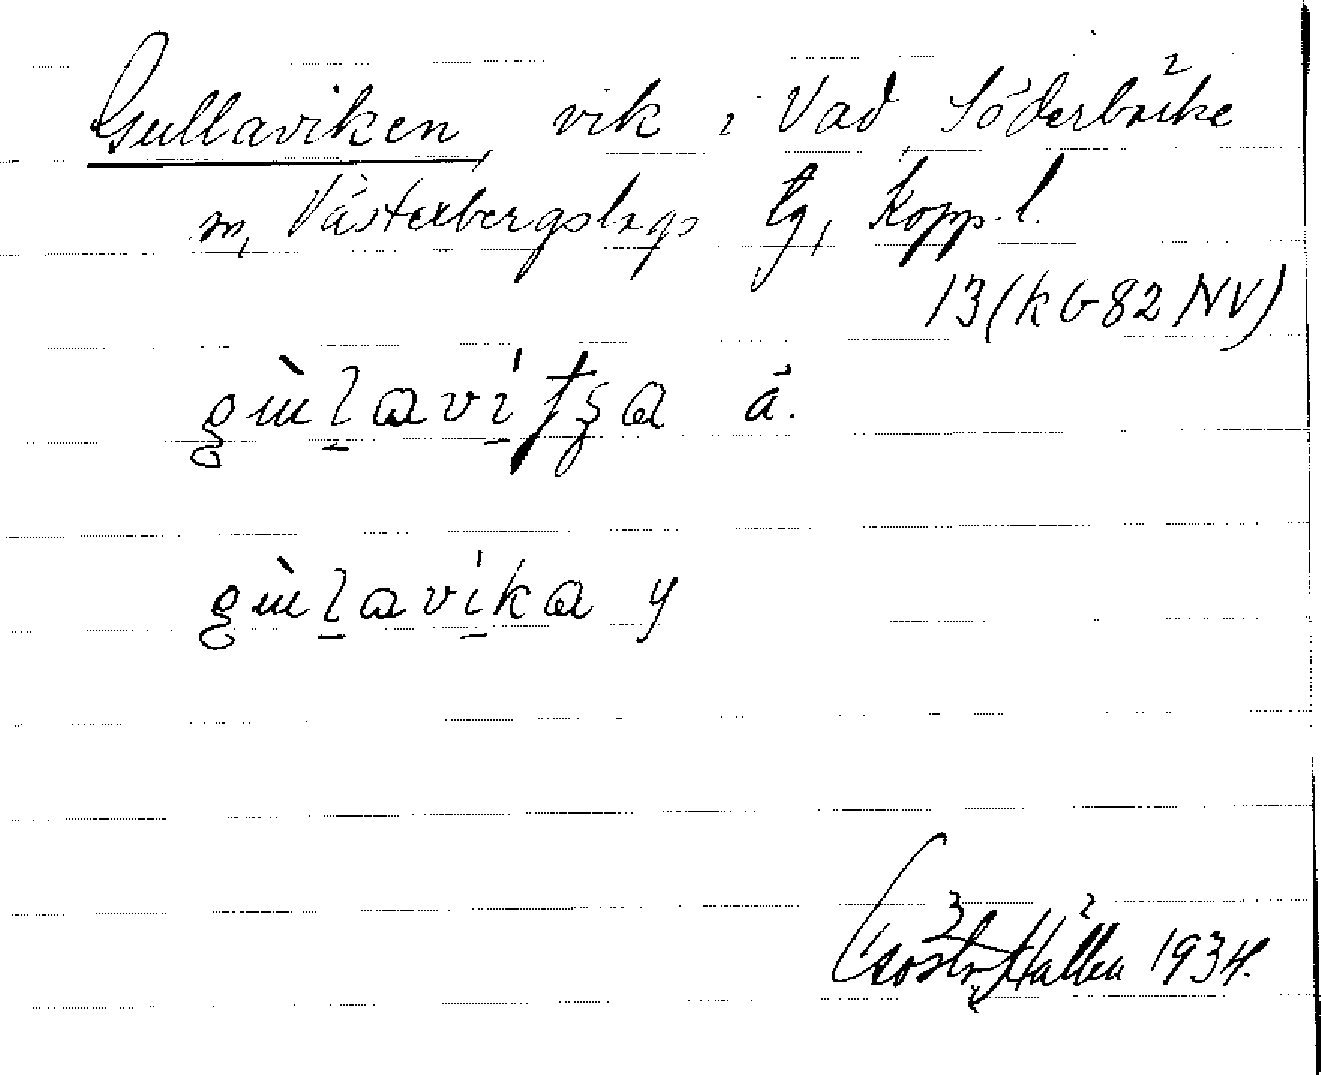 Gullaviken, vik i Vad, Söderbärke
m, Västerbergslags tg, Kopp. l.
13 (k G 82 NV)
gù̀lavi̱tʒa ä.
gùlavi̱ka y
1934.